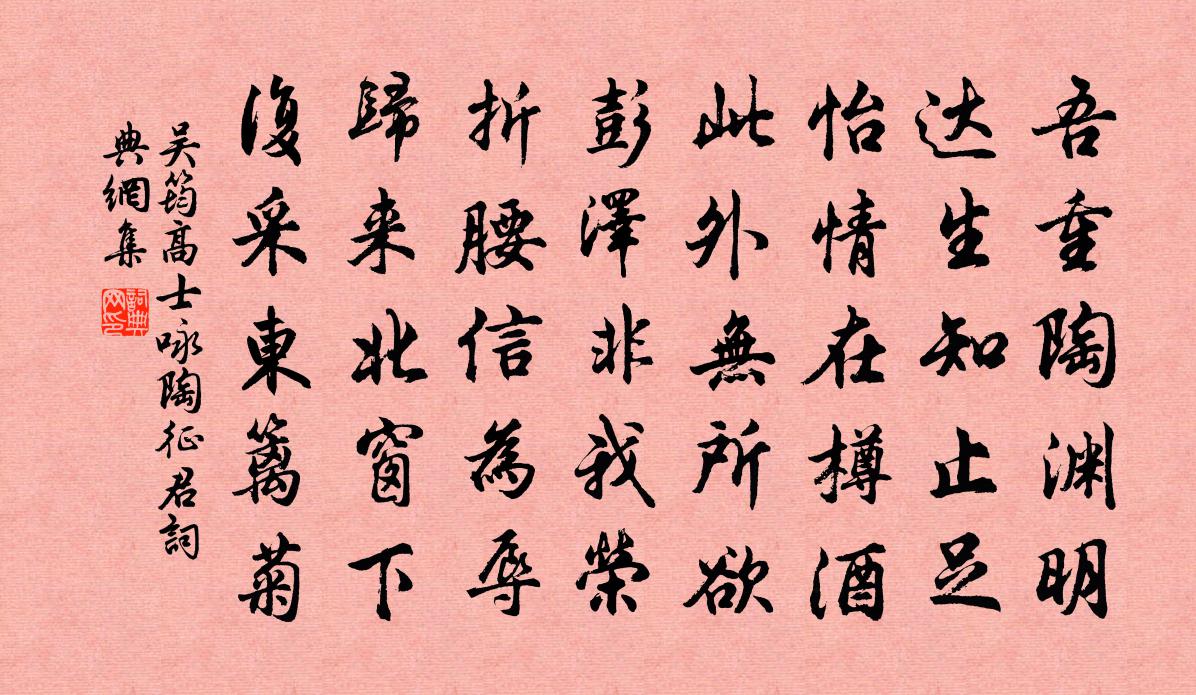 吾重陶渊明
达生知止足
怡情在樽酒
此外無所欲
彭澤非我榮
折腰信為辱
歸来北窗下
復采東籬菊
吴筠高士咏陶征君詞
典網集
詞典网印